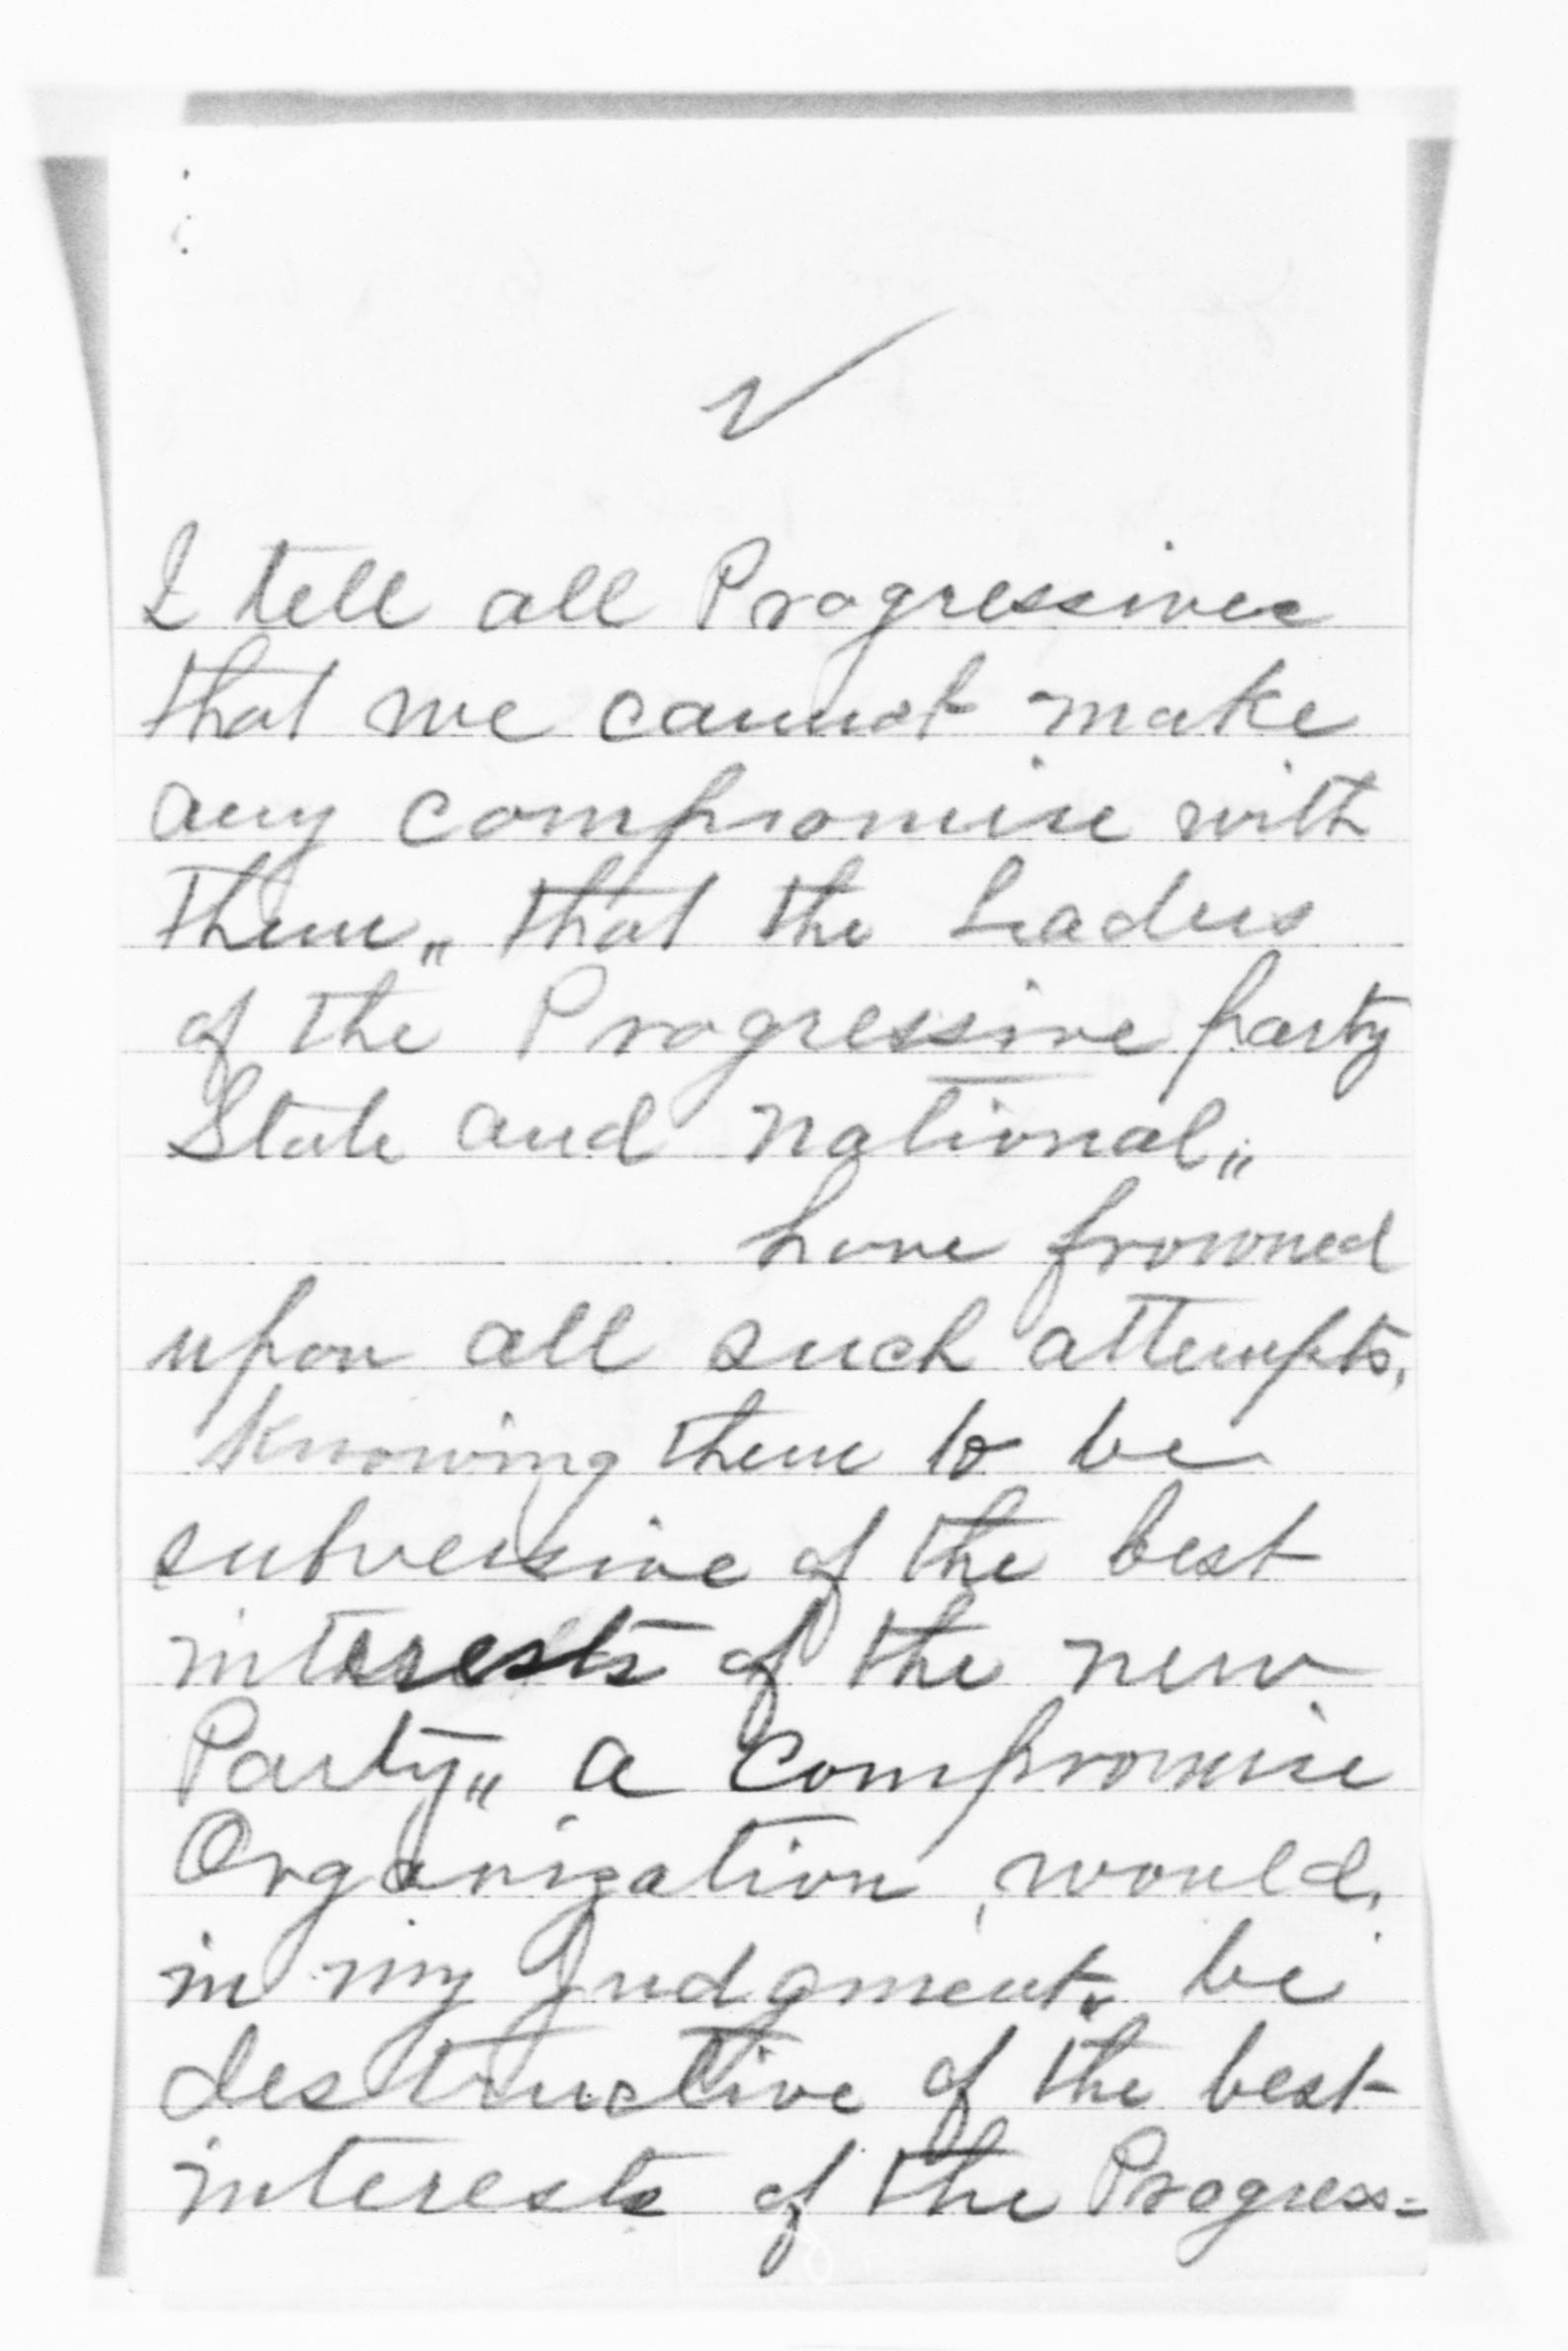 I tell all Progressives
that we cannot make
any compromise with
them„ that the Leaders
of the Progressive party
State and national„
have frowned
upon all such attempts,
knowing them to be
subversive of the best
interests of the new
Party„ a compromise
Organization, would,
in my Judgment„ be
destructive of the best
interests of the Progress=